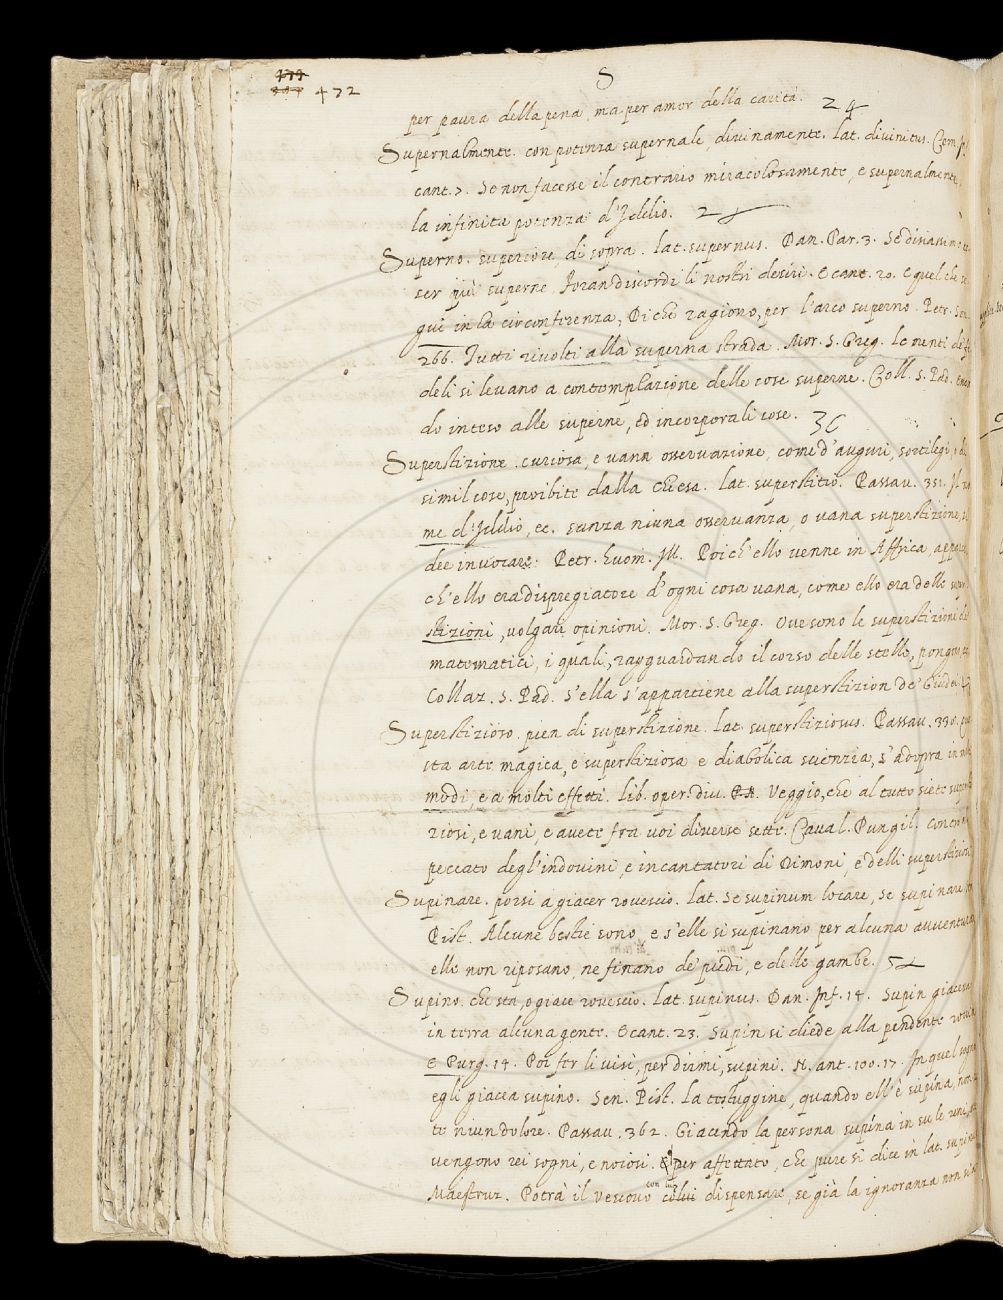 S
432
per paura della pena, ma per amor della carità. 24
Supernalmente. con potenza supernale, divinamente. lat. divinitus. Com.
cant. 7. Se non facesse il contrario miracolosamente, e supernalmente,
la infinita potenza d'Iddio. 2
Superno. superiore, di sopra. lat. supernus. Dan. Par. 3. Se disiassimo
ser più superne Foran discordi li nostri desiri. E cant. 20. E quel che se
gue in la circonferenza, Di che ragiono, per l'arco superno. Petr. Son.
266. Tutti rivolti alla superna strada. Mor. S. Greg. Le menti de' fe
deli si levano a contemplazione delle cose superne. Coll. S. Pad.
do inteso alle superne, ed incorporali cose. 3
Superstizione. curiosa, e vana osservazione, come d'auguri, sortilegi,
simil cose, proibite dalla Chiesa. lat. superstitio. Passav. 351. Il no
me d'Iddio, ec. sanza niuna osservanza, o vana superstizione, si
dee invocare. Petr. huom. Ill. Poich'ello venne in Affrica,
ch'ello era dispregiatore d'ogni cosa vana, come ello era delle super
stizioni, volgari opinioni. Mor. S. Greg. Ove sono le superstizioni de
matematici, i quali, ragguardando il corso delle stelle, pongon
Collaz. S. Pad. S'ella s'appartiene alla superstizion de' Giudei
Superstizioso. pien di superstizione. lat. superstiziosus. Passav. 330. Que
sta arte magica, e superstiziosa e diabolica scienzia, s'adopra in molti
modi, e a molti effetti. Lib. oper. div. Veggio, che al tutto siete supersti
ziosi, e vani, e avete fra voi diverse sette. Caval. Pungil.
peccato degl'indovini, e incantatori di Dimoni, e delli superstiziosi
Supinare. porsi a giacer rovescio. Lat. se supinum locare, se supinare
Pist. Alcune bestie sono, e s'elle si supinano per alcuna avventura
elle non riposano, ne finano de' piedi, e delle gambe. 5
Supino. che sta, o giace rovescio. Lat. supinus. Dan. Inf. 14. Supin giaceva
in terra alcuna gente. E cant. 23. Supin si diede alla pendente roccia
E Purg. 14. Poi fer li visi, per dirmi, supini. N. ant. 100. 17. In quel sogno
egli giacea supino. Sen. Pist. La testuggine, quando ell'è supina, non
te niun dolore. Passav. 362. Giacendo la persona supina in su le reni,
vengono rei sogni, e noiosi. per affettato, che pure si dice in lat. supinus
con lui
Maestruz. Potrà il Vescovo colui dispensare, se già la ignoranza non sia